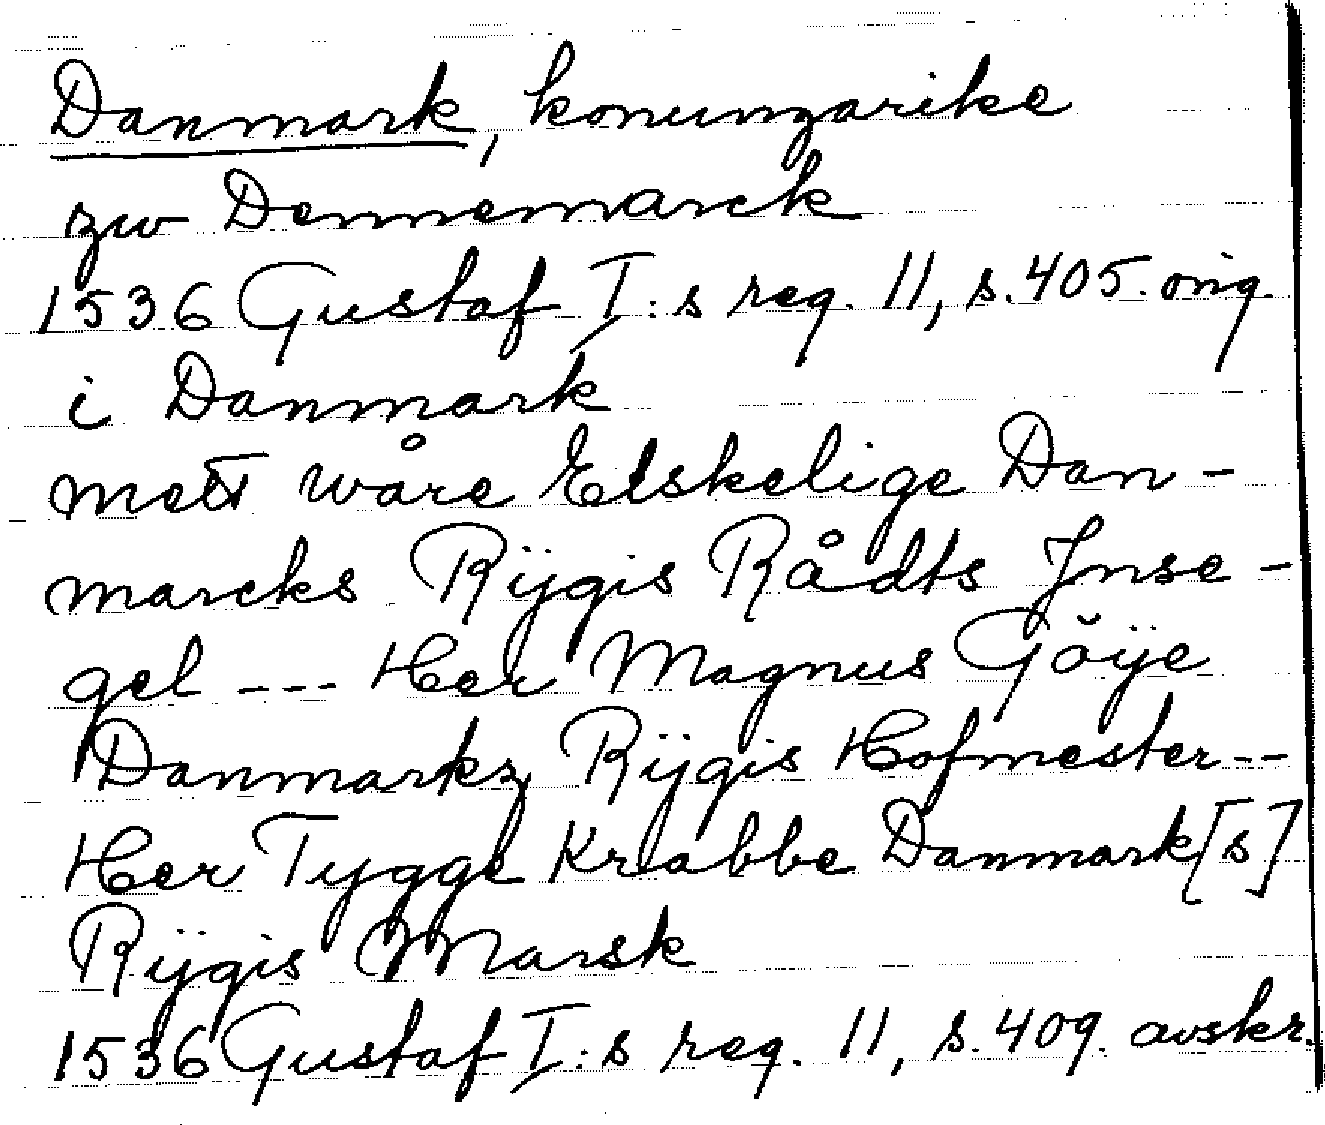 Danmark, konungarike
zw Dennemarck
1536 Gustaf I:s reg. 11, s. 405. orig.
i Danmark
mett wåre Elskelige Dan-
marcks Rÿgis Rådts Jnse-
gel --- Her Magnus Göÿe
Danmarkz Rÿgis Hofmester --
Her Tygge Krabbe Danmark[s]
Rÿgis Marsk
1536 Gustaf I:s reg. 11, s. 409. avskr.